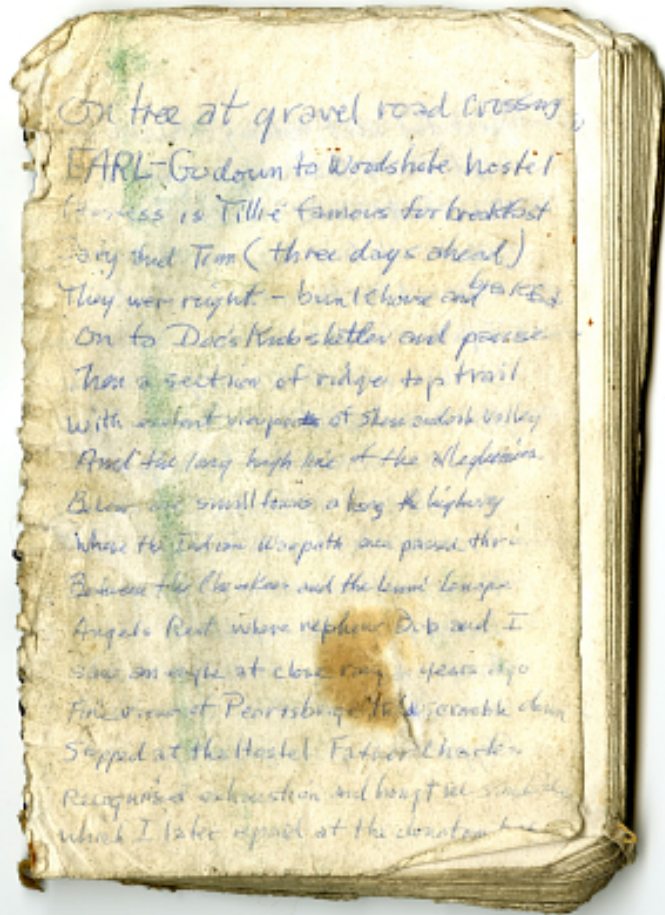 On tree at gravel road crossing
EARL-Go down to Woodshole hostel
is Tillie famous for breakfast
and Tim (three days ahead)
They were right - bunkhouse and
On to Doc's Knob shelter and
Then a section of ridge top trail
With viewpoints of Shenandoah Valley
And the long high line of the Alleghenies
Below are small towns along the highway
Where the Indian Warpath once passed thru
Between the Cherokees and the Lenni Lenape
Angels Rest where nephew Bub and I
saw an eagle at close years ago
Fine view of Pearisburg down
Stopped at the Hostel Father Charles
Recognized exhaustion and bought me
which I later repaid at the